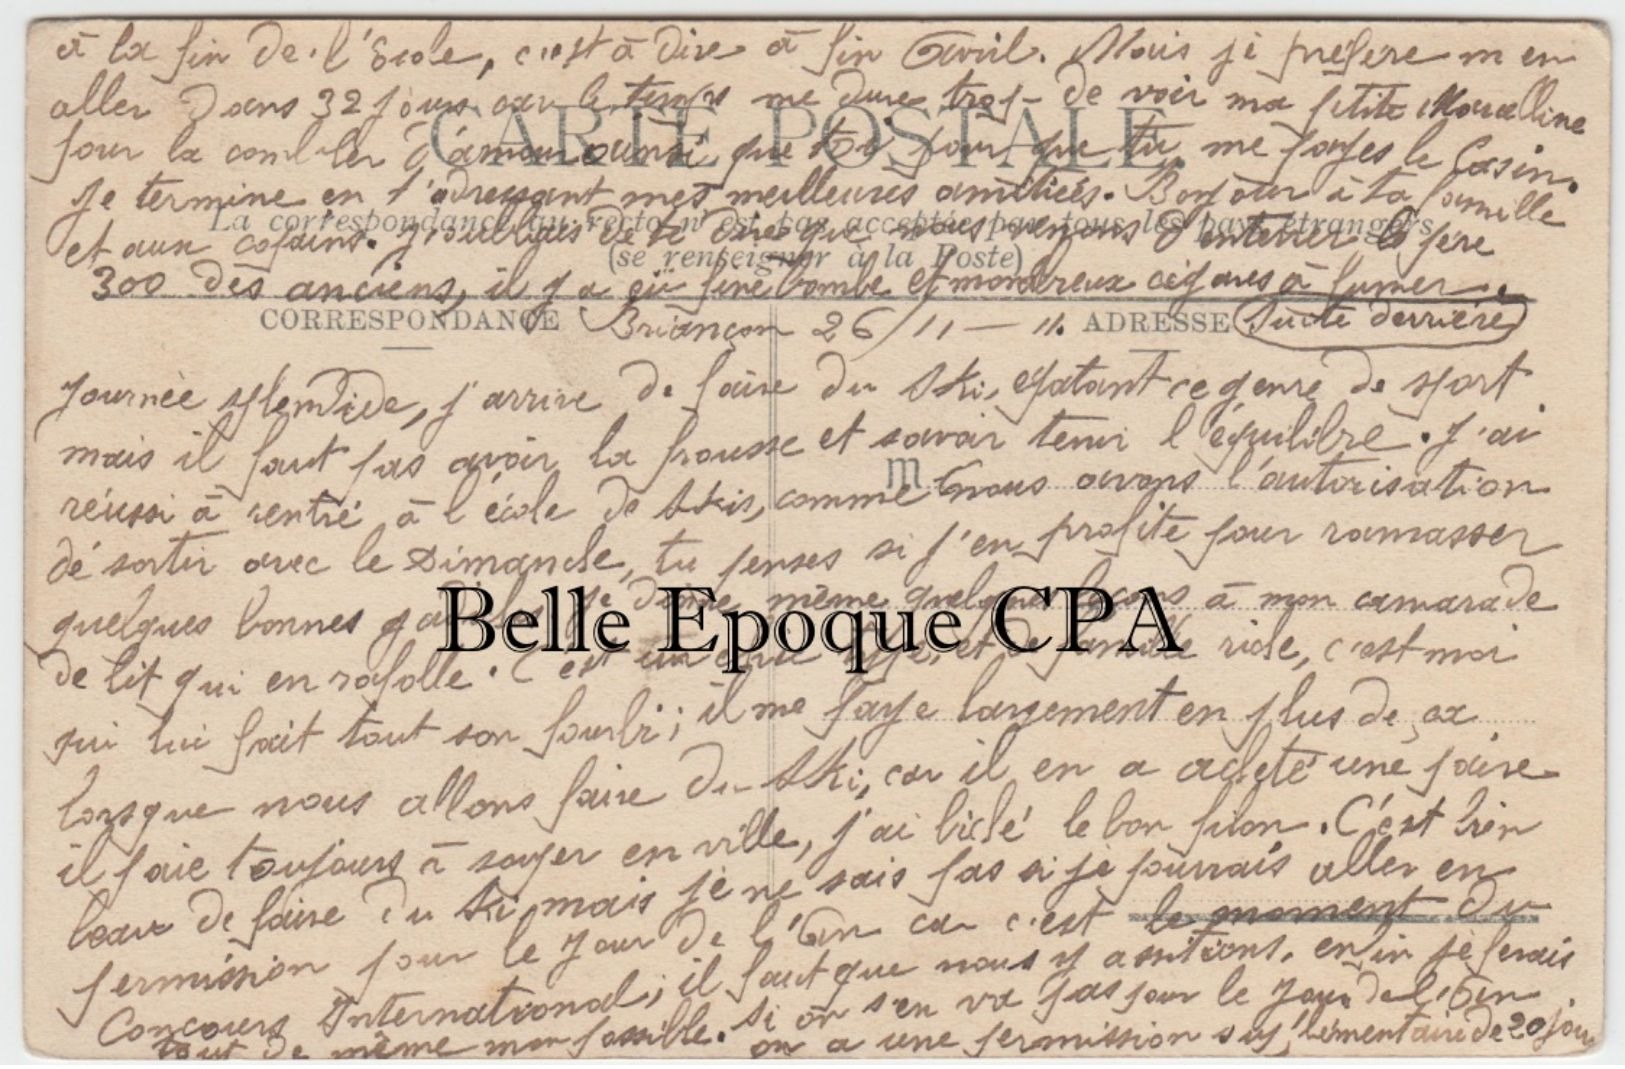 à la fin de l'école, c'est à dire à fin Avril. Mais je préfère m'en
aller dans 32 jours car le temps me dure trop de voir ma petite
CARTE POSTALE
pour la combler d'amour ainsi que toi pour que tu me payes le Casin.
Je termine en t'adressant mes meilleures amitiés. Bonjour à ta famille
La correspondance au recto n'est pas acceptée par tous les pays étrangers
et aux copains. J'oubliais de te dire que nous venons d'enterrer le père
(se renseigner à la Poste)
300 des anciens, il y a eü fine bombe et nombreux cigares à fumer.
CORRESPONDANCE Briançon 26/11 — 11. ADRESSE Suite derrière
Journée splendide, j'arrive de faire du ski, épatant ce genre de sport
mais il faut pas avoir la frousse et savoir tenir l'équilibre. J'ai
M
réussi à rentré à l'école de skis, comme nous avons l'autorisation
dé sortir avec le Dimanche, tu penses si j'en profite pour ramasser
quelques bonnes je donne même quelques leçons à mon camarade
Belle Epoque CPA
de lit qui en rafolle. C'est un type, et de famille riche, c'est moi
qui lui fait tout son fourbi; il me paye largement en plus de ça
lorsque nous allons faire du ski, car il en a acheté une paire
il paie toujours à souper en ville, j'ai biclé le bon filon. C'est bien
beau de faire du ski mais je ne sais pas si je pourrais aller en
permission pour le Jour de l'An car c'est le moment du
Concours International; il faut que nous y assitions. enfin je ferais
tout de même mon possible. Si on s'en va pas pour le Jour de l'An
on a une permission suplémentaire de 20 jours